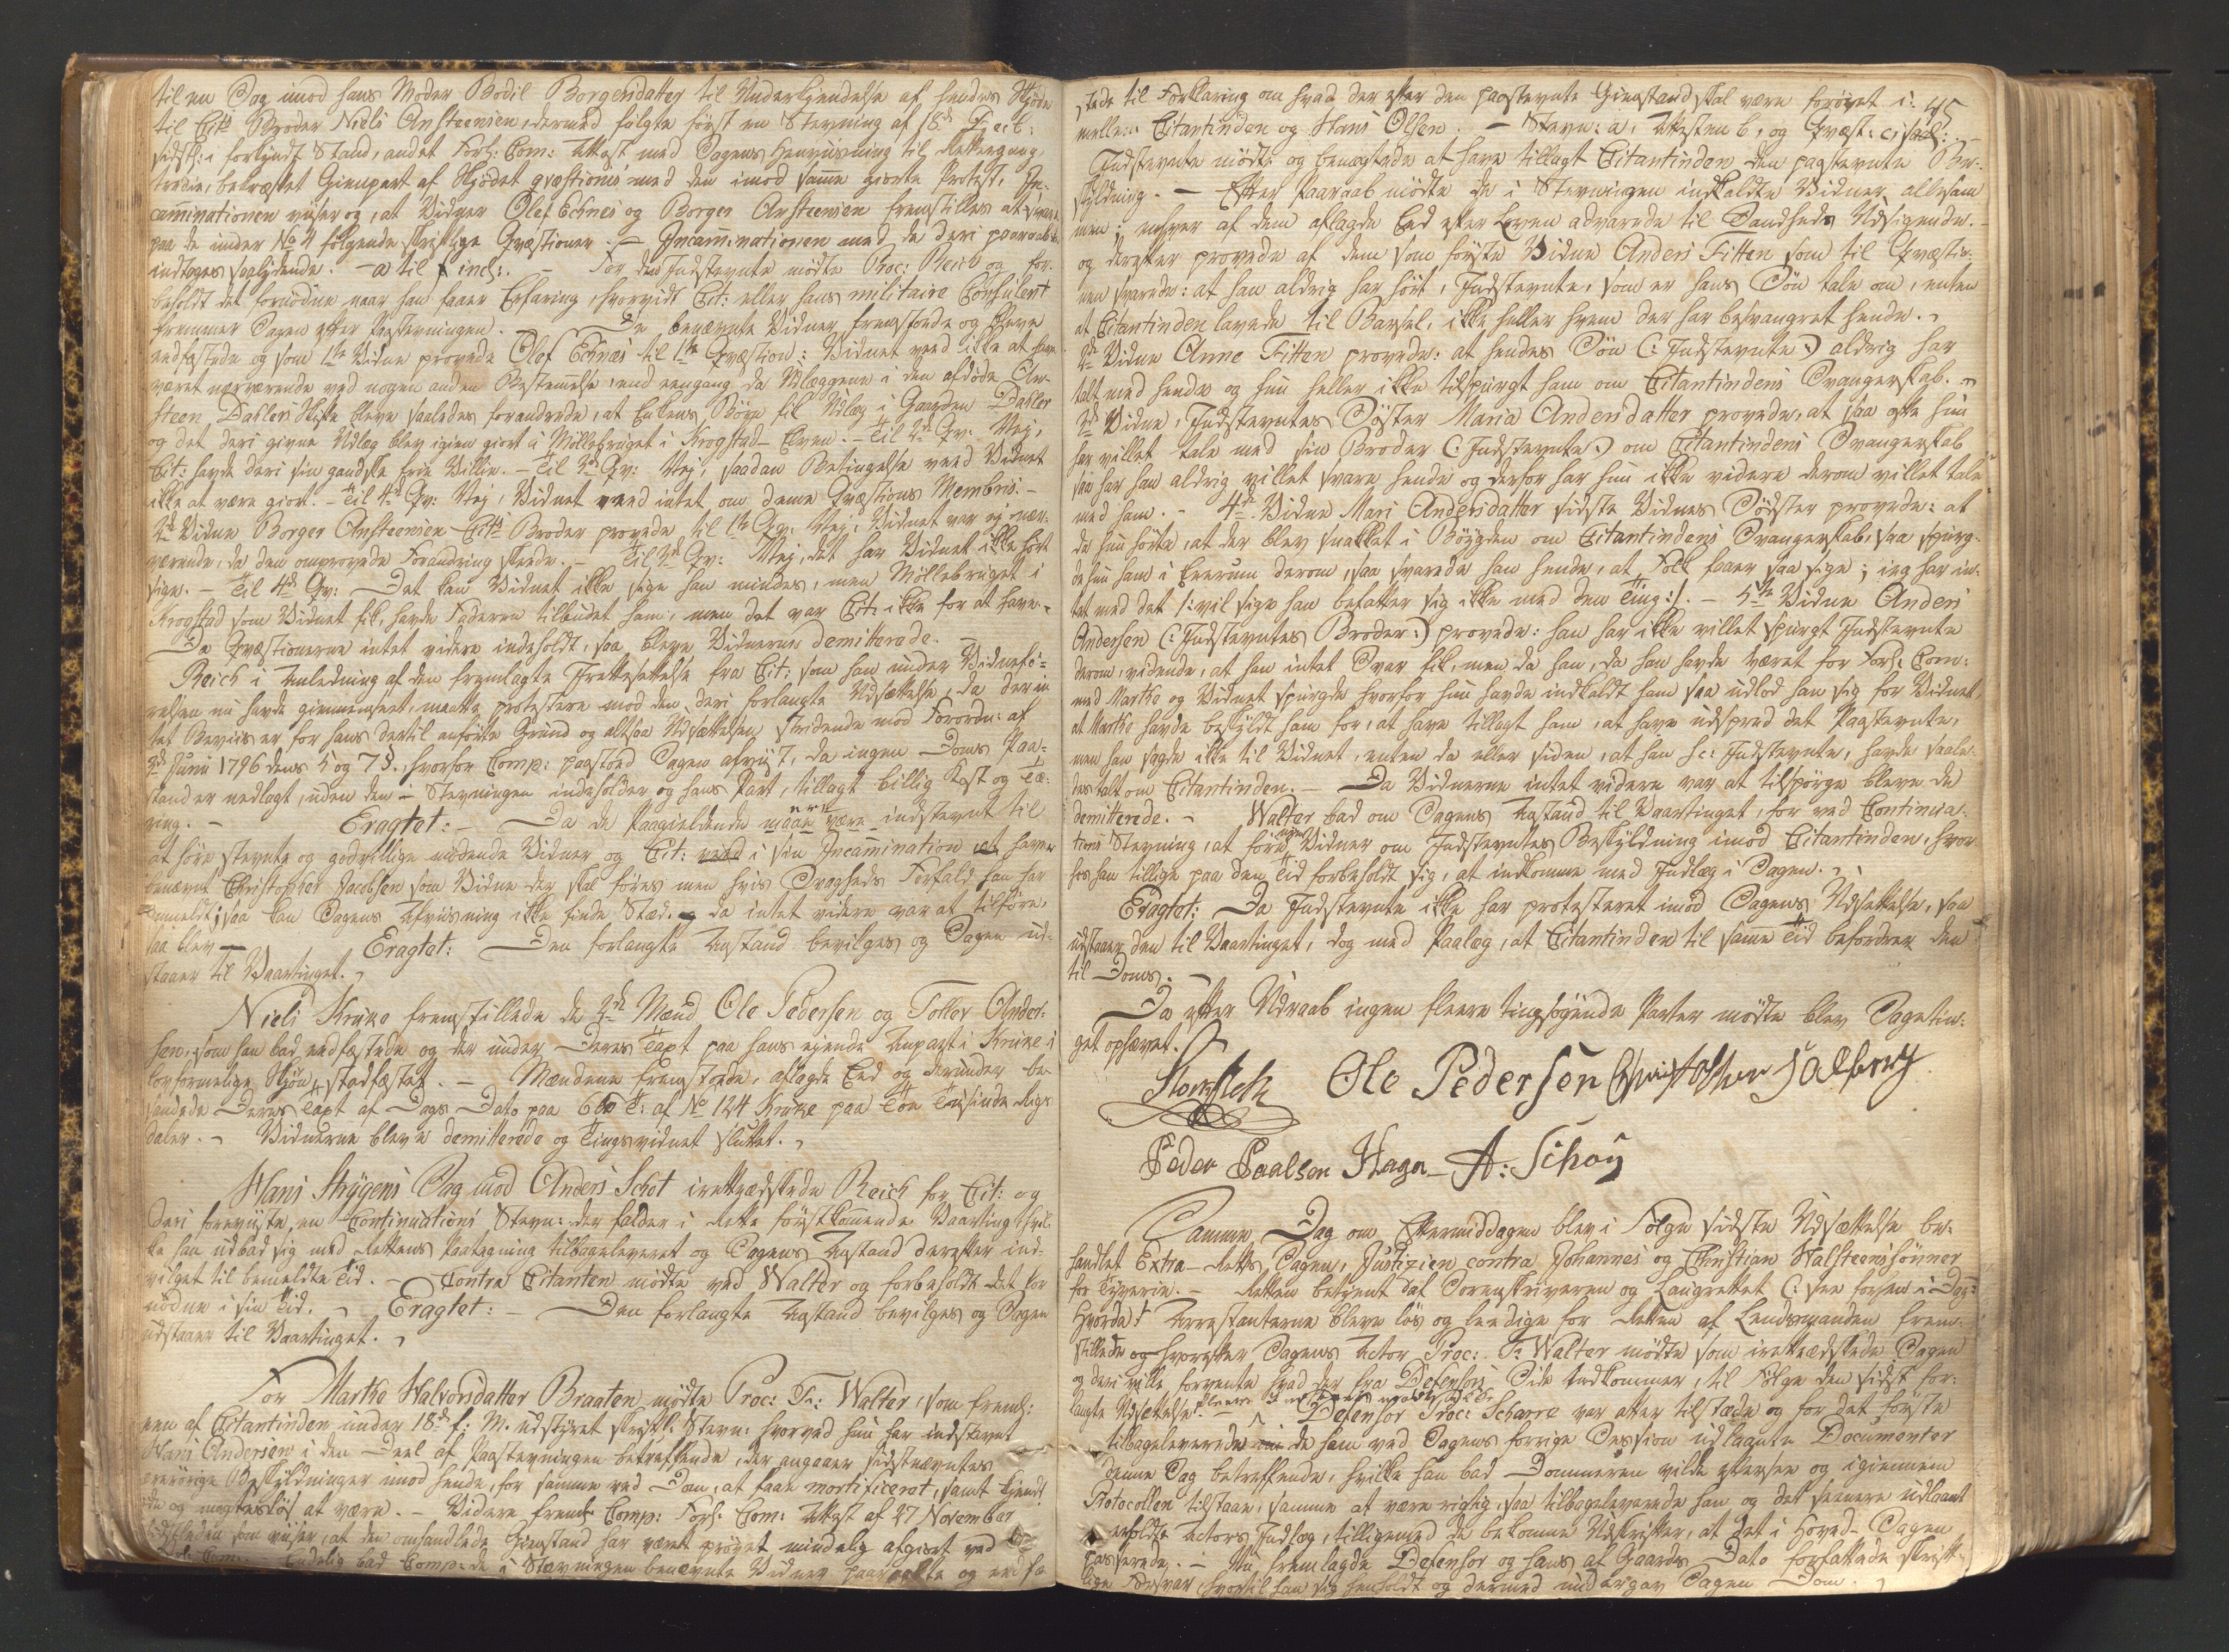 til en Sag imod hans Moder Bodil Borgersdatter til Underkjendelse af hendes Skjöde
til Cits Broder Niels Ansteensen, dermed fulgte först en Stevning af 18de Decb:
sidstl: i forkyndt Stand, andet Forl: Com: Attest med Sagens Henviisning til Rettergang,
tredie, bekræftet Gienpart af Skjödet qvæstionis med den imod samme giorte Protest. In-
caminationen viiser og, at Vidner Olef Echnes og Borger Ansteensen fremstilles at svare
paa de under No 4 fölgende skriftlige Qvæstioner. — Incaminationen med de deri paaraabte
indtages saalydende: — a til f incl:. — For den Indstevnte mödte Proc: Reich og for-
beholdt det fornödne naar han faaer Erfaring, hvorvidt Cit: eller hans militaire Consulent
fremmer Sagen efter Paastevningen. De benævnte Vidner fremstode og bleve
eedfæstede og som 1te Vidne provede Olef Echnæs til 1te Qvæstion: Vidnet veed ikke at have
været nærværende ved nogen anden Bestemelse, end eengang da Udlæggene i den afdöde An-
steen Dahlers Skifte bleve saaledes forandrede, at Enkens Börn fik Udlæg i Gaarden Dahler
og det deri givne Udlæg blev igien giort i Möllebruget i Krogstad-Elven. — Til 2de Qv: Nej,
Cit: havde deri sin gandske frie Villie. — Til 3de Qv: Nej, saadan Betingelse veed Vidnet
ikke at være giort. — Til 4de Qv: Nej, Vidnet veed intet om denne Qvæstions Membris. —
2de Vidne Borger Ansteensen Cits Broder provede til 1te Qv: Nej, Vidnet var ej nær-
værende, da den omprovede Forandring skeede. — Til 3de Qv: Nej, det har Vidnet ikke hört
sige. — Til 4de Qv: Det kan Vidnet ikke sige han mindes, men Möllebruget i
Krogstad som Vidnet fik, havde Faderen tilbudet ham, men det var Cit: ikke for at have. —
Da Qvæstionerne intet videre indeholdt, saa bleve Vidnerne demitterede. —
Reich i Anledning af den fremlagte Irettesettelse fra Cit: som han under Vidnefö-
relsen nu havde giennemseet, maatte protestere mod den deri forlangte Udsættelse, da der in-
tet Beviis er for hans dertil anförte Grund og altsaa Udsættelsen stridende mod Forordn: af
3de Junii 1796 dens 5 og 7 §., hvorfor Comp: paastod Sagen afviist, da ingen Doms Paa-
stand er nedlagt, uden den — Stevningen indeholder og hans Part, tillagt billig Kost og Tæ-
ring. — Eragtet: — Da de Paagieldende ere indstevnt til
at höre stevnte og godvillige mödende Vidner og Cit: i sin Incamination har
benævnt Christopher Jacobsen som Vidne der skal föres men hvis Svagheds Forfald han har
anmeldt; saa kan Sagens Afviisning ikke finde Sted. — da intet videre var at tilföre,
saa blev — Eragtet: Den forlangte Anstand bevilges og Sagen ud-
staaer til Vaartinget. —
Niels Kruke fremstillede de 2de Mænd Ole Pedersen og Tollov Ander-
sen, som han bad eedfæstede og der under Deres Taxt paa hans ejende Anpart i Kruke i
lovformelige Skjön, stadfæstet. — Mændene fremstode, aflagde Eed og derunder be-
sandede Deres Taxt af Dags Dato paa T: af No 124 Kruke paa Toe Tusinde Rigs
daler. — Vidnerne bleve demitterede og Tingsvidnet sluttet. —
Hans Strygens Sag mod Anders Schot irettæskede Reich for Cit: og
deri foreviiste en Continuations Stevn: der falder i Rette förstkomende Vaarting, hvil-
ke han udbad sig med Rettens Paategning tilbageleveret og Sagens Anstand derefter ind-
vilget til bemeldte Tid. — Contra Citanten mödte ved Walter og forbeholdt det for
nödne i sin Tid. — Eragtet: — Den forlangte Anstand bevilges og Sagen
udstaaer til Vaartinget. —
For Marthe Halvorsdatter Braaten mödte Proc: Fr: Walter, som freml:
een af Citantinden under 18de f: M. udstædet skriftl: Stevn: hvorved hun har indstevnt
Hans Andersen i den Deel af Paastevningen betreffende, der angaaer sidstnævntes
ærerörige Beskyldninger imod hende, for samme ved Dom, at faae mortificeret, samt kiendt
döde og magteslös at være. — Videre freml: Comp: Forl: Com: Attest af 27 November
sidstleden som viiser, at den omhandlede Gienstand har været prövet mindelig afgiort ved
Forl: Com: Endelig bad Comp: de i Stævningen benævnte Vidner paaraabte og eedfæ
stede til Forklaring om hvad der efter den paastevnte Gienstand skal være forövet i- 45
mellem Citantinden og Hans Olsen. — Stevn: a, Attesten b, og Qvæst: c, saal:. —
Indstevnte mödte og benægtede at have tillagt Citantinden den paastevnte Be-
skyldning. — Efter Paaraab mödte de i Stevningen indkaldte Vidner allesam
men; enhver af dem aflagde Eed efter Loven advarede til Sandheds Udsigende. —
og derefter provede af dem som förste Vidne Anders Fitten som til Qvæstio-
nen svarede: at han aldrig har hört, Indstevnte, som er hans Sön tale om, enten
at Citantinden lavede til Barsel, ikke heller hvem der har besvangret hende. —
2de Vidne Anne Fitten provede: at hendes Sön (: Indstevnte :) aldrig har
talt med hende og hun heller ikke tilspurgt ham om Citantindens Svangerskab. —
3de Vidne, Indstevntes Söster Maria Andersdatter provede, at saa ofte hun
har villet tale med sin Broder (: Indstevnte :) om Citantindens Svangerskab
saa har han aldrig villet svare hende og derfor har hun ikke videre derom villet tale
med ham. — 4de Vidne Mari Andersdatter sidste Vidnes Södster provede: at
da hun hörte, at der blev snakket i Böygden om Citantindens Svangerskab, saa spurg-
de hun ham i Eenrum derom, saa svarede han hende, at Folk faaer saa sige; jeg har in-
tet med det /: vil sige han befatter sig ikke med den Ting :/. — 5te Vidne Anders
Andersen (: Indstevntes Broder :) provede: han har ikke villet spurgt Indstevnte
derom, vidende, at han intet Svar fik, men da han, da han havde været for Forl: Com:
med Marthe og Vidnet spurgde hvorfor hun havde indkaldt ham saa udlod han sig for Vidnet,
at Marthe havde beskyldt ham for, at have tillagt ham, at have udspred det Paastevnte,
men han sagde ikke til Vidnet, enten da eller siden, at han sc: Indstevnte, havde saale-
des talt om Citantinden. — Da Vidnerne intet videre var at tilspörge bleve de
demitterede. — Walter bad om Sagens Anstand til Vaartinget, for ved Continua-
tions Stevning, at före Vidner om Indstevntes Beskyldning imod Citantinden, hvor-
hos han tillige paa den Tid forbeholdt sig, at indkomme med Indlæg i Sagen. —
Eragtet: Da Indstevnte ikke har protesteret imod Sagens Udsettelse, saa
udstaaer den til Vaartinget, dog med Paalæg, at Citantinden til samme Tid befordrer den
til Doms. —
Da efter Udraab ingen fleere tingsögende Parter mödte blev Sagetin-
get ophævet.
Ole Pedersen Christopher Jalberg
Peder Paalsen Hagen A: Schou
Samme Dag om Eftermiddagen blev i Fölge sidste Udsættelse be-
handlet Extra-Retts Sagen, Justizien contra Johannes og Christian Halsteensönner
for Tyverie. — Retten betient af Sorenskriveren og Laugrettet (: see forhen i Dag :)
Hvorda Arrestanterne bleve lös og leedige for Retten af Lensmanden frem-
stillede og hvorefter Sagens Actor Proc: Fr: Walter mödte som irettæskede Sagen
og deri ville forvente hvad der fra Defensors Side indkommer, til Fölge den sidst for-
langte Udsettelse. — Defensor Proc: Scharre var atter tilstæde og for det förste
tilbageleverede de ham ved Sagens forrige Session udlaante Documenter
denne Sag betreffende, hvilke han bad Dommeren vilde eftersee og igiennem
Protocollen tilstaae, samme at være rigtig, saa tilbageleverede han og det seenere udlaant
erholdte Actors Indlæg, tilligemed de bekomne Udskrifter, at det i Hoved-Sagen
passerede. — Nu fremlagde Defensor og hans af Gaards Dato forfattede skrift-
lige Forsvar, hvortil han sig henholdt og dermed undergav Sagen Dom. —